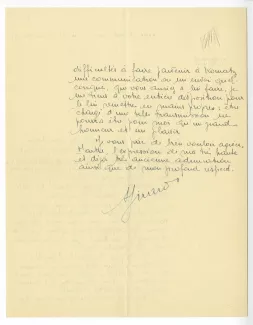 difficultés à faire parvenir à
une communication ou un envoi quel-
conque, que vous auriez à lui faire, je
me tiens à votre entière disposition pour
le lui remettre en mains propres; être
chargé d'une telle transmission ne
pourra être pour moi qu'un grand
honneur et un plaisir.
Je vous prie de bien vouloir agréer,
Maître, l'expression de ma très haute
et déjà très ancienne admiration
ainsi que de mon profond respect.